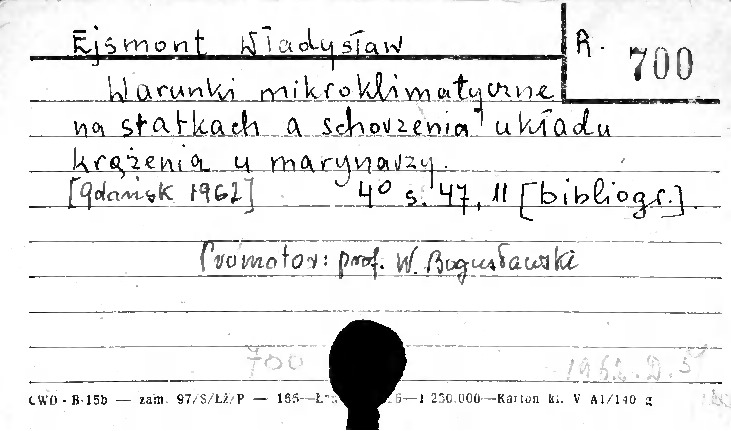 Ejsmont Władysław R. 700
Warunki mikroklimatyczne
na statkach a schorzenia układu
krążenia u marynarzy.
[Gdańsk 1962] 4° s. 47, 11 [bibliogr.].
Promotor: prof. W. Bogusławski
700 1962.D.5
CWD - B-15b — zam. 97/S/ŁŻ/P — 165— 1 250.000—Karton kl. V A1/140 g